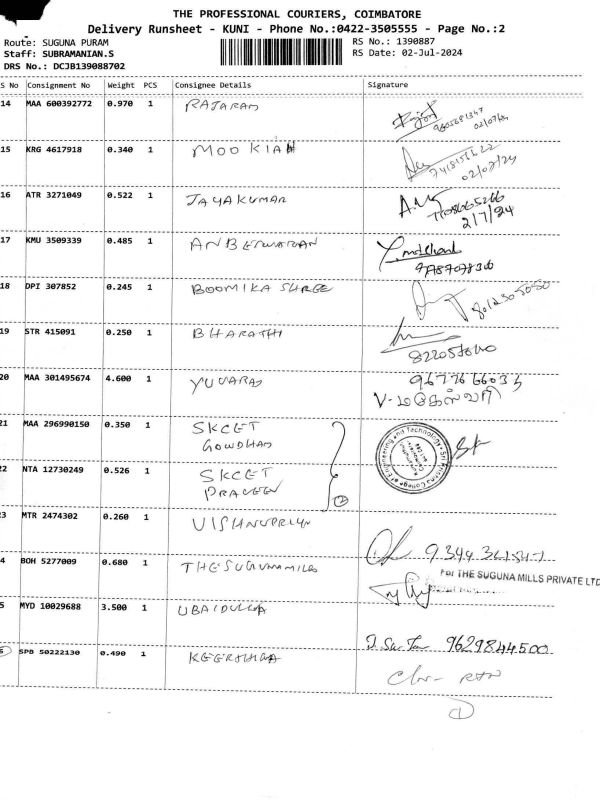 THE PROFESSIONAL COURIERS, COIMBATORE
Delivery Runsheet - KUNI - Phone No.:0422-3505555 - Page No.:2
Route: SUGUNA PURAM
RS No.: 1390887
Staff: SUBRAMANIAN.S
RS Date: 02-Jul-2024
DRS No.: DCJB139088702
S No Consignment No Weight PCS Consignee Details Signature
14 MAA 600392772 0.970 1 RAJARAM
02/07/24
15 KRG 4617918 0.340 1 MOOKIAH
02/07/24
16 ATR 3271049 0.522 1 JAYAKUMAR
2/7/24
17 KMU 3509339 0.485 1
18 DPI 307852 0.245 1 BOOMIKA SHREE
19 STR 415091 0.250 1 BHARATHI
20 MAA 301495674 4.600 1 YUVARAJ
21 MAA 296990150 0.350 1 SKCET
GOWDHAM
22 NTA 12730249 0.526 1 SKCET
PRAVEEN
2
23 MTR 2474302 0.260 1 VISHNUPRIYA
4 BOH 5277009 0.680 1 THE SUGUNA MILLS
For THE SUGUNA MILLS PRIVATE LTD
5 MYD 10029688 3.500 1 UBAIDULLA
9629844500
6 SPB 50222130 0.490 1
1